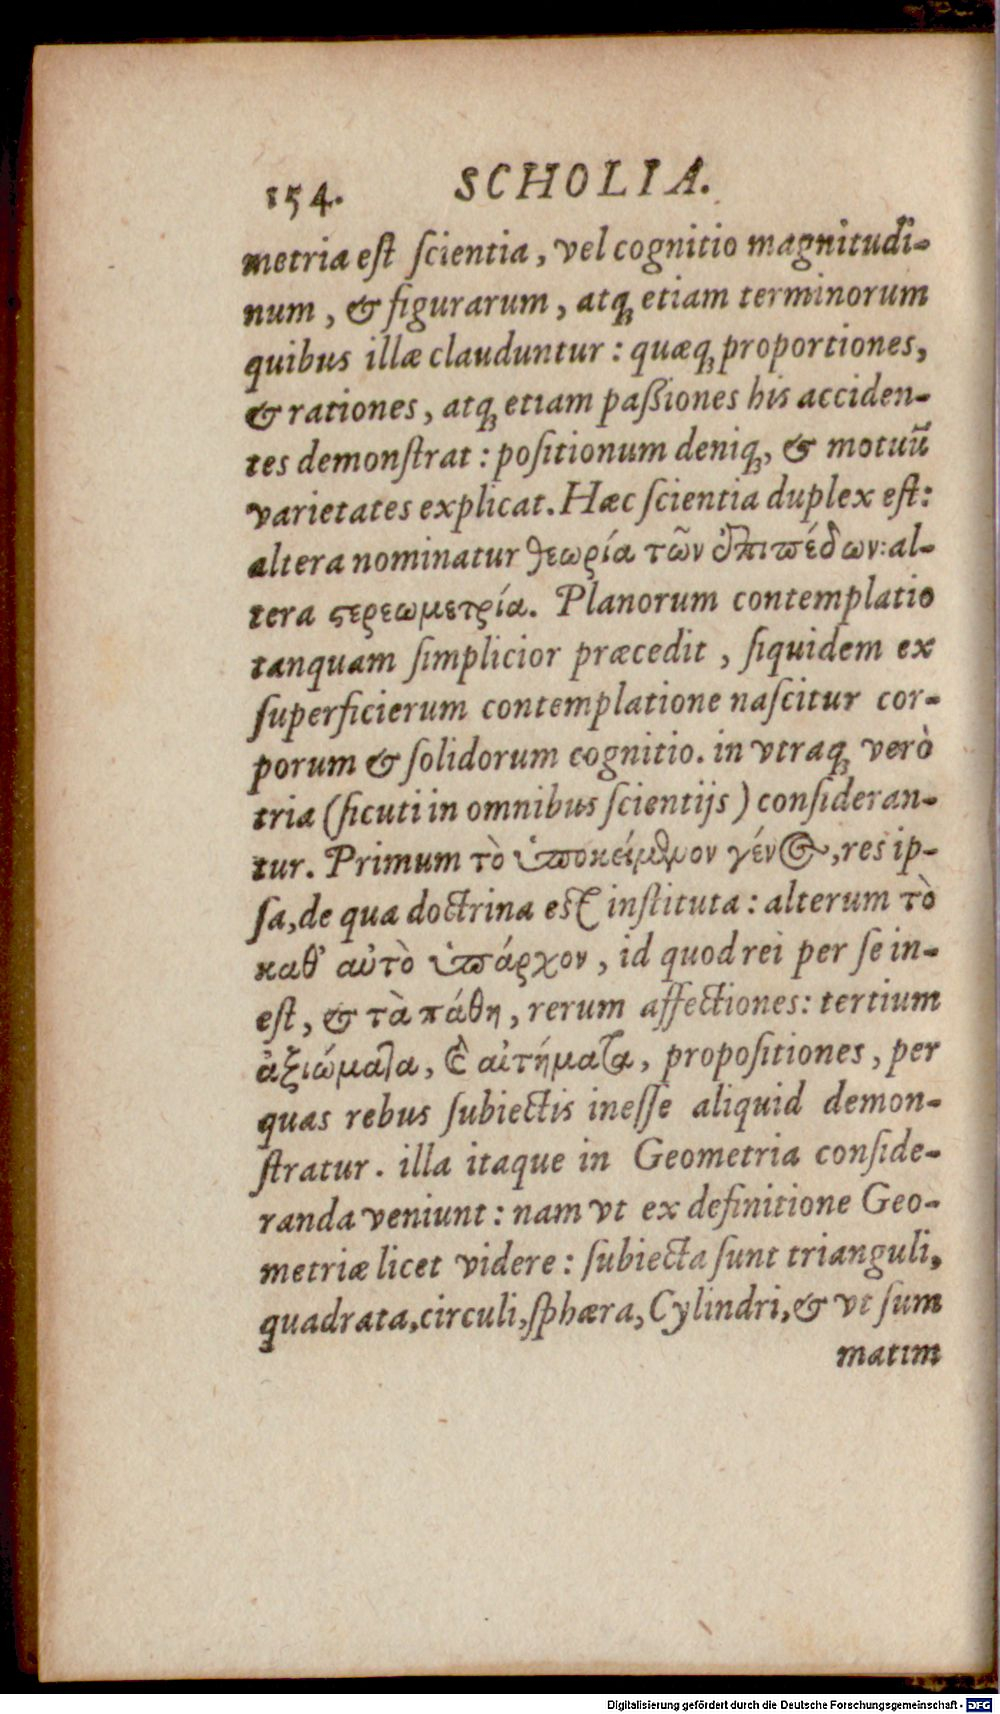 154. SCHOLIA.
metria est scientia, vel cognitio magnitudi-
num, & figurarum, atq́; etiam terminorum
quibus illæ clauduntur: quæq́; proportiones,
& rationes, atq́; etiam paßiones his acciden-
tes demonstrat: positionum deniq́;, & motuũ
varietates explicat. Hæc scientia duplex est:
altera nominatur θεωρία τῶν ἐπιπέδων: al-
tera ςερεωμετρία. Planorum contemplatio
tanquam simplicior præcedit, siquidem ex
superficierum contemplatione nascitur cor-
porum & solidorum cognitio. in vtraq́; verò
tria (sicuti in omnibus scientijs) consideran-
tur. Primum τὸ ὑποκείμενον γένος, res ip-
sa, de qua doctrina est instituta: alterum τὸ
καθ’ αὐτὸ ὑπάρχον, id quod rei per se in-
est, & τὰ πάθη, rerum affectiones: tertium
ἀξιώματα, καὶ αἰτήματα, propositiones, per
quas rebus subiectis inesse aliquid demon-
stratur. illa itaque in Geometria conside-
randa veniunt: nam vt ex definitione Geo-
metriæ licet videre: subiecta sunt trianguli,
quadrata, circuli, sphæra, Cylindri, & vt sum
matim
Digitalisierung gefördert durch die Deutsche Forschungsgemeinschaft - DFG